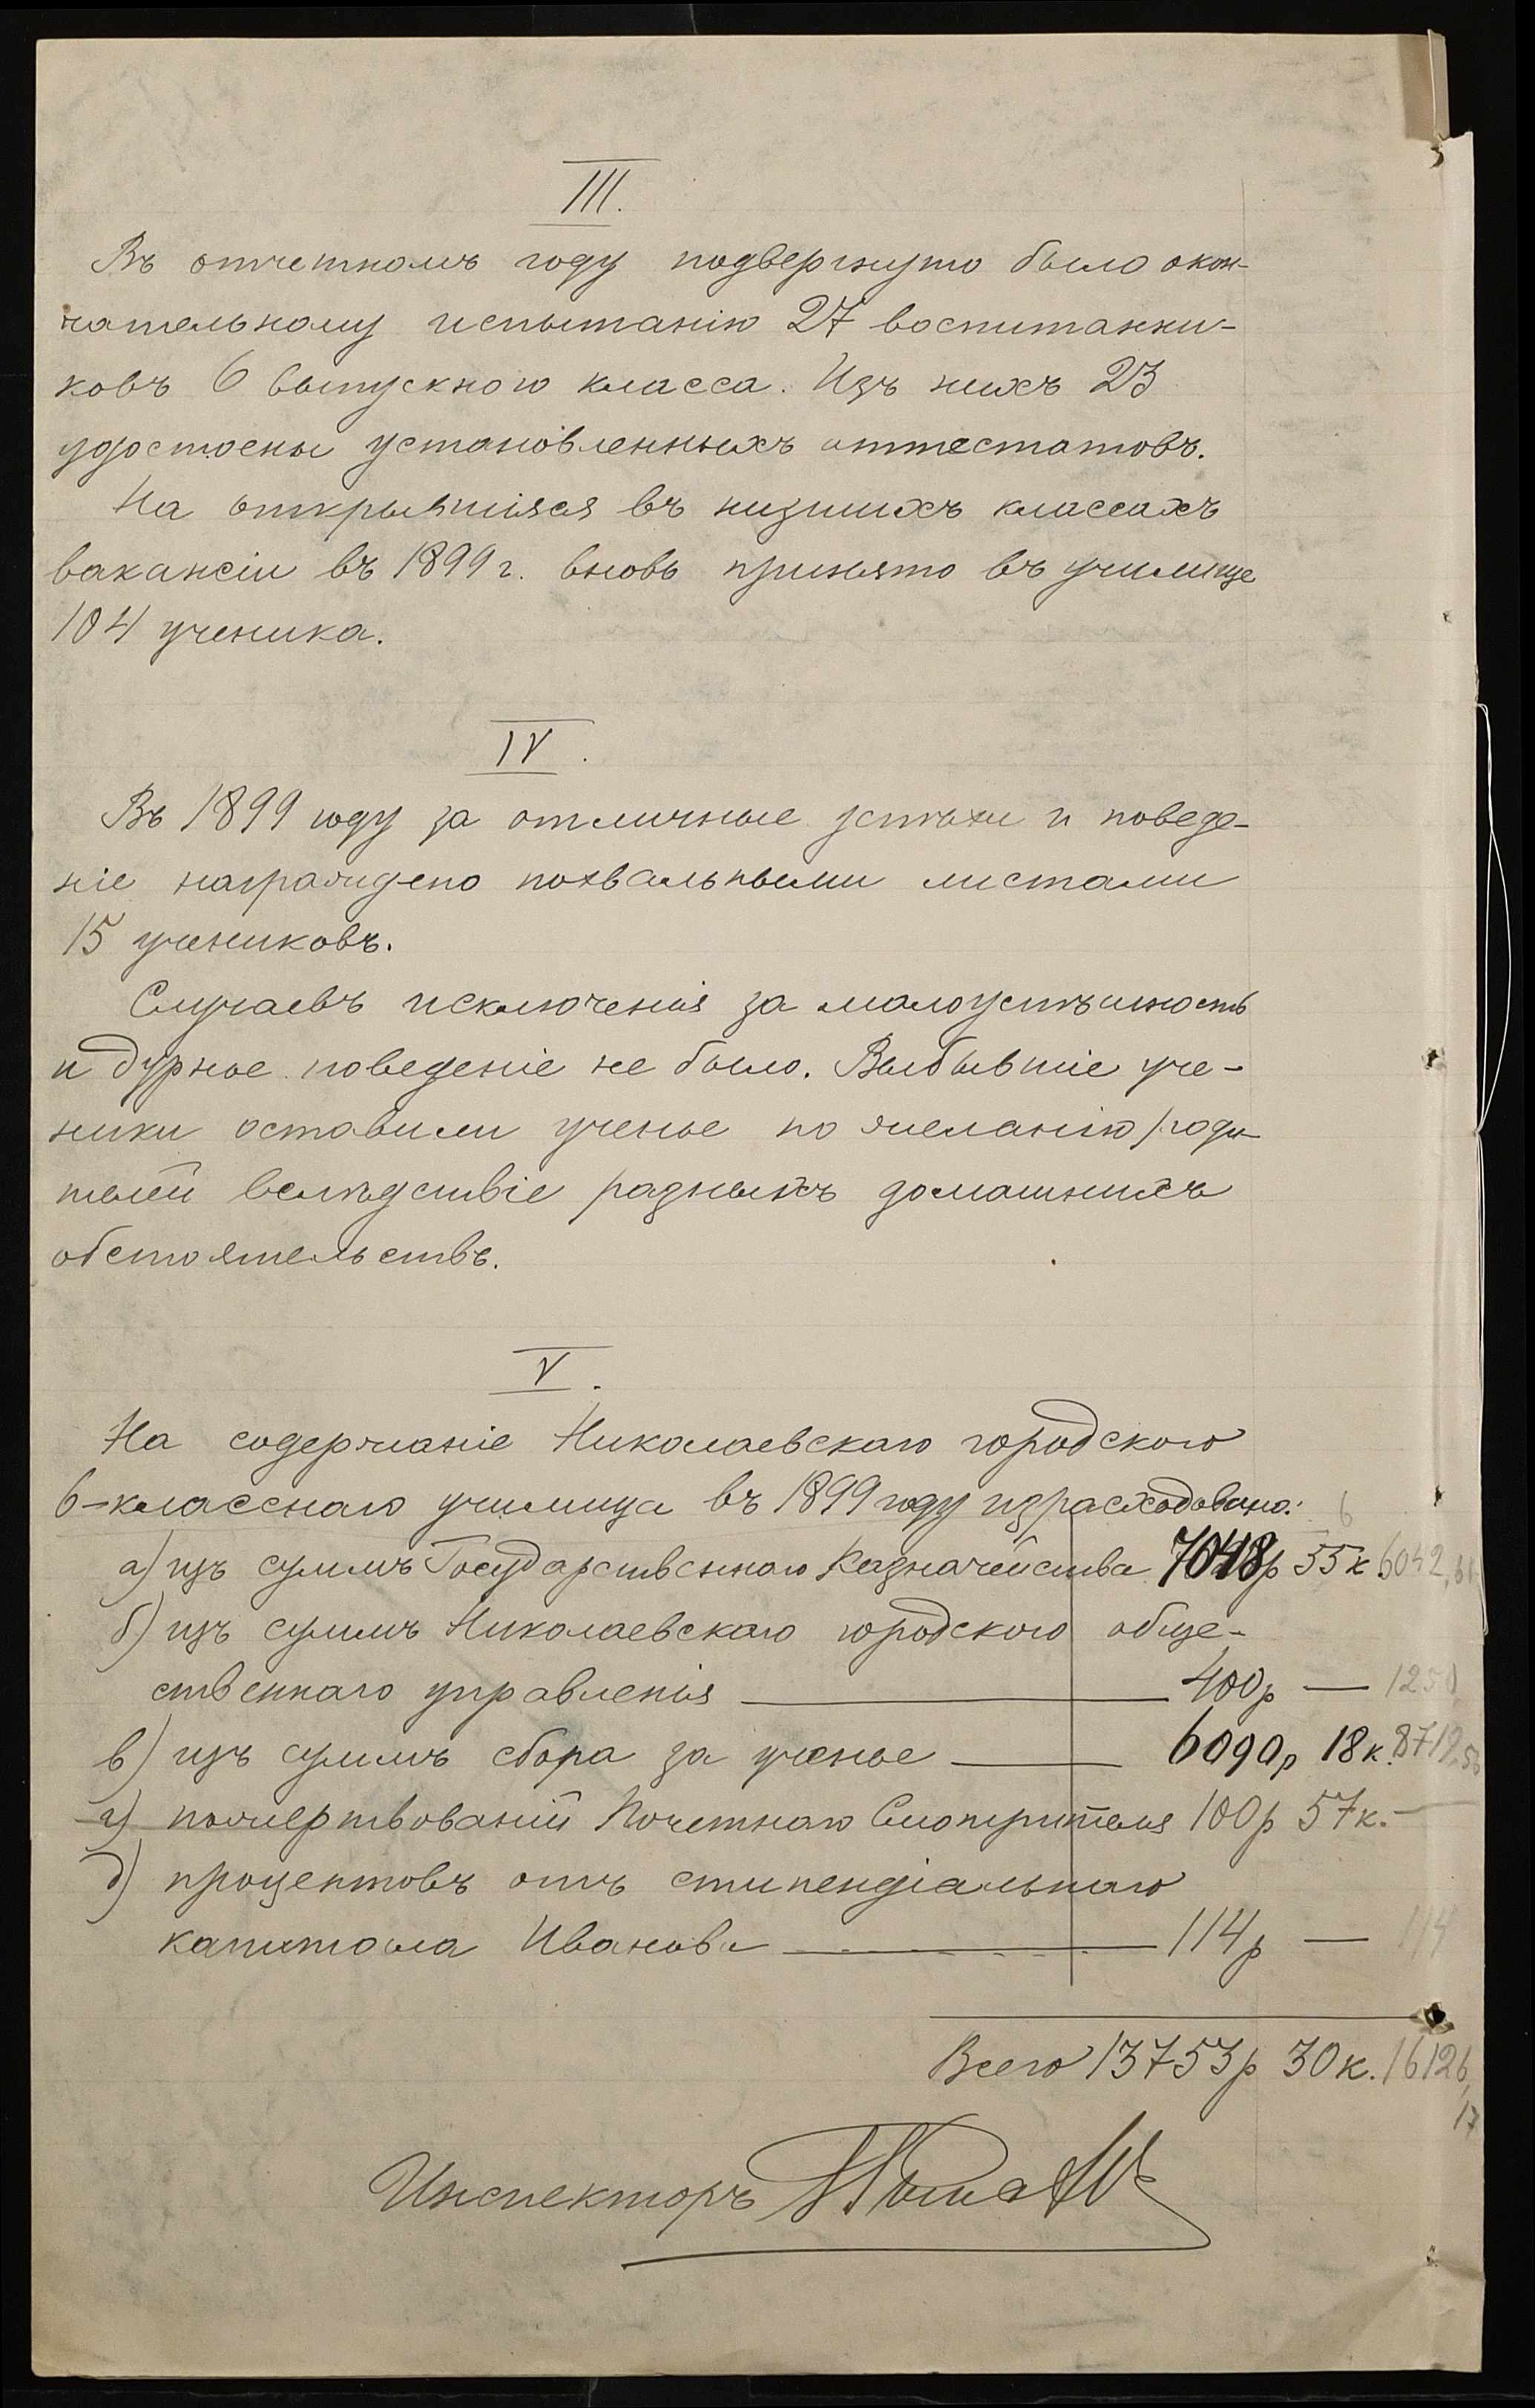 III.
Въ отчетномъ году подвергнуто было окон-
чательному испытанію 27 воспитанни-
ковъ 6 выпускного класса. Изъ нихъ 23
удостоены установленныхъ аттестатовъ.
На открывшіяся въ низшихъ классахъ
вакансіи въ 1899 г. вновь принято въ училище
104 ученика.
IV.
Въ 1899 году за отличные успѣхи и поведе-
ніе награждено похвальными листами
15 учениковъ.
Случаевъ исключенія за малоуспѣшность
и дурное поведеніе не было. Выбывшіе уче-
ники оставили ученье по желанію роди-
телей вслѣдствіе разныхъ домашнихъ
обстоятельствъ.
V.
На содержаніе Николаевскаго городского
6-класснаго училища въ 1899 году израсходовано: 6
а) изъ суммъ Государственнаго Казначейства 7048р 55к. 6042,61
б) изъ суммъ Николаевскаго городского обще-
ственнаго управленія — 400р — 1250
в) изъ суммъ сбора за ученье — 6090р 18к. 8719,56
г) пожертвованій Почетнаго Смотрителя 100р 57к. —
д) процентовъ отъ стипендіальнаго
капитала Иванова — 114р — 114
Всего 13753р 30к. 16126,
17
Инспекторъ